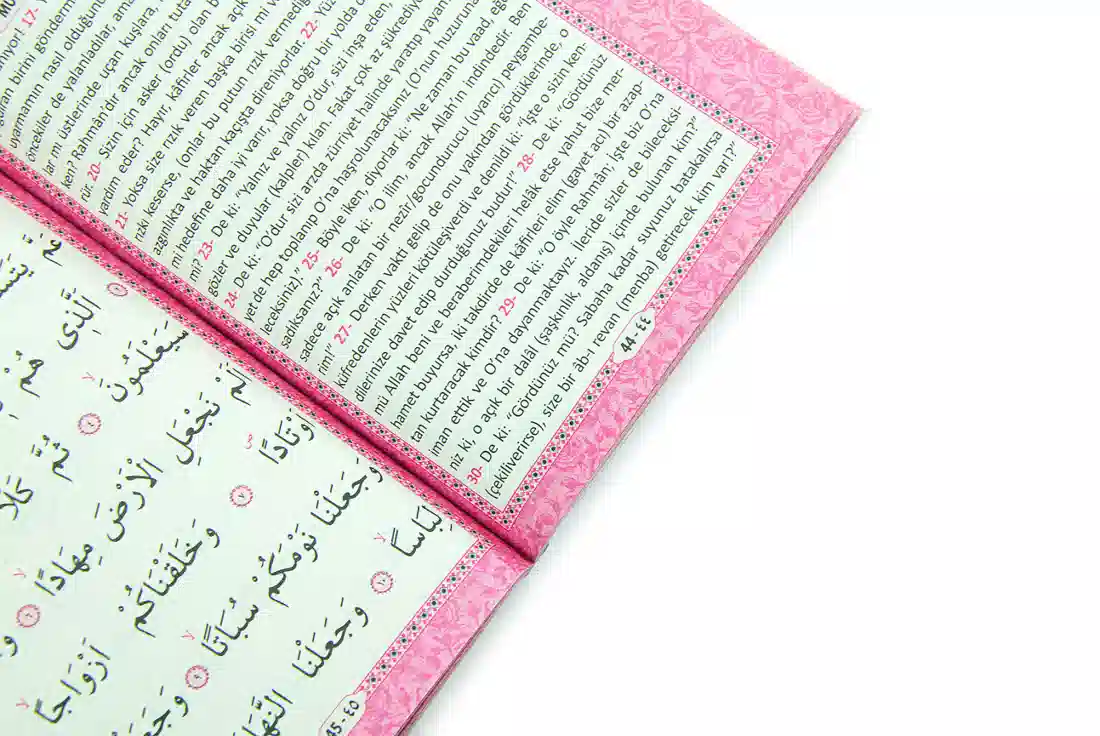 17-
birini gönderm
uyarmamın nasıl olduğunu
öncekiler de yalanladılar, ama
lar mı üstlerinde uçan kuşlara,
ken? Rahmân'dır ancak onları tuta
rür. 20- Sizin için asker (ordu) olan b
yardım eder? Hayır, kâfirler ancak açık
21- Yoksa size rızık veren başka birisi mi v
rızkı keserse, (onlar bu putun rızık vermediğ
azgınlıkta ve haktan kaçışta direniyorlar. 22- Yüz
mi hedefine daha iyi varır, yoksa doğru bir yolda d
mi? 23- De ki: "Yalnız ve yalnız O'dur, sizi inşa eden,
gözler ve duyular (kalpler) kılan. Fakat çok az şükrediy
24- De ki: "O'dur sizi arzda zürriyet halinde yaratıp yayan
yet de hep toplanıp O'na haşrolunacaksınız (O'nun huzuruna
leceksiniz)." 25- Böyle iken, diyorlar ki: "Ne zaman bu vaad, eğe
sadıksanız?" 26- De ki: "O ilim, ancak Allah'ın indindedir. Ben
sadece açık anlatan bir nezir/gocundurucu (uyarıcı) peygambe-
rim!" 27- Derken vakti gelip de onu yakından gördüklerinde, o
küfredenlerin yüzleri kötüleşiverdi ve denildi ki: "İşte o sizin ken-
dilerinize davet edip durduğunuz budur!" 28- De ki: "Gördünüz
mü Allah beni ve beraberimdekileri helâk etse yahut bize mer-
hamet buyursa, iki takdirde de kâfirleri elim (gayet acı) bir azap-
tan kurtaracak kimdir? 29- De ki: "O öyle Rahmân; İşte biz O'na
iman ettik ve O'na dayanmaktayız. İleride sizler de bileceksi-
niz ki, o açık bir dalâl (şaşkınlık, aldanış) içinde bulunan kim?"
30- De ki: "Gördünüz mü? Sabaha kadar suyunuz batakalırsa
(çekiliverirse), size bir âb-ı revan (menba) getirecek kim var!?
44 - ٤٤
عَمَّ
١ اَلَّذ۪ي هُمْ
سَيَعْلَمُونَ ٤ ثُمَّ كَلَّا
اَلَمْ نَجْعَلِ الْاَرْضَ مِهَادًا ٦
اَوْتَادًا ٧ وَخَلَقْنَاكُمْ اَزْوَاجًا
وَجَعَلْنَا نَوْمَكُمْ سُبَاتًا ٩
لِبَاسًا ١٠ وَجَعَلْنَا
45 - ٤٥